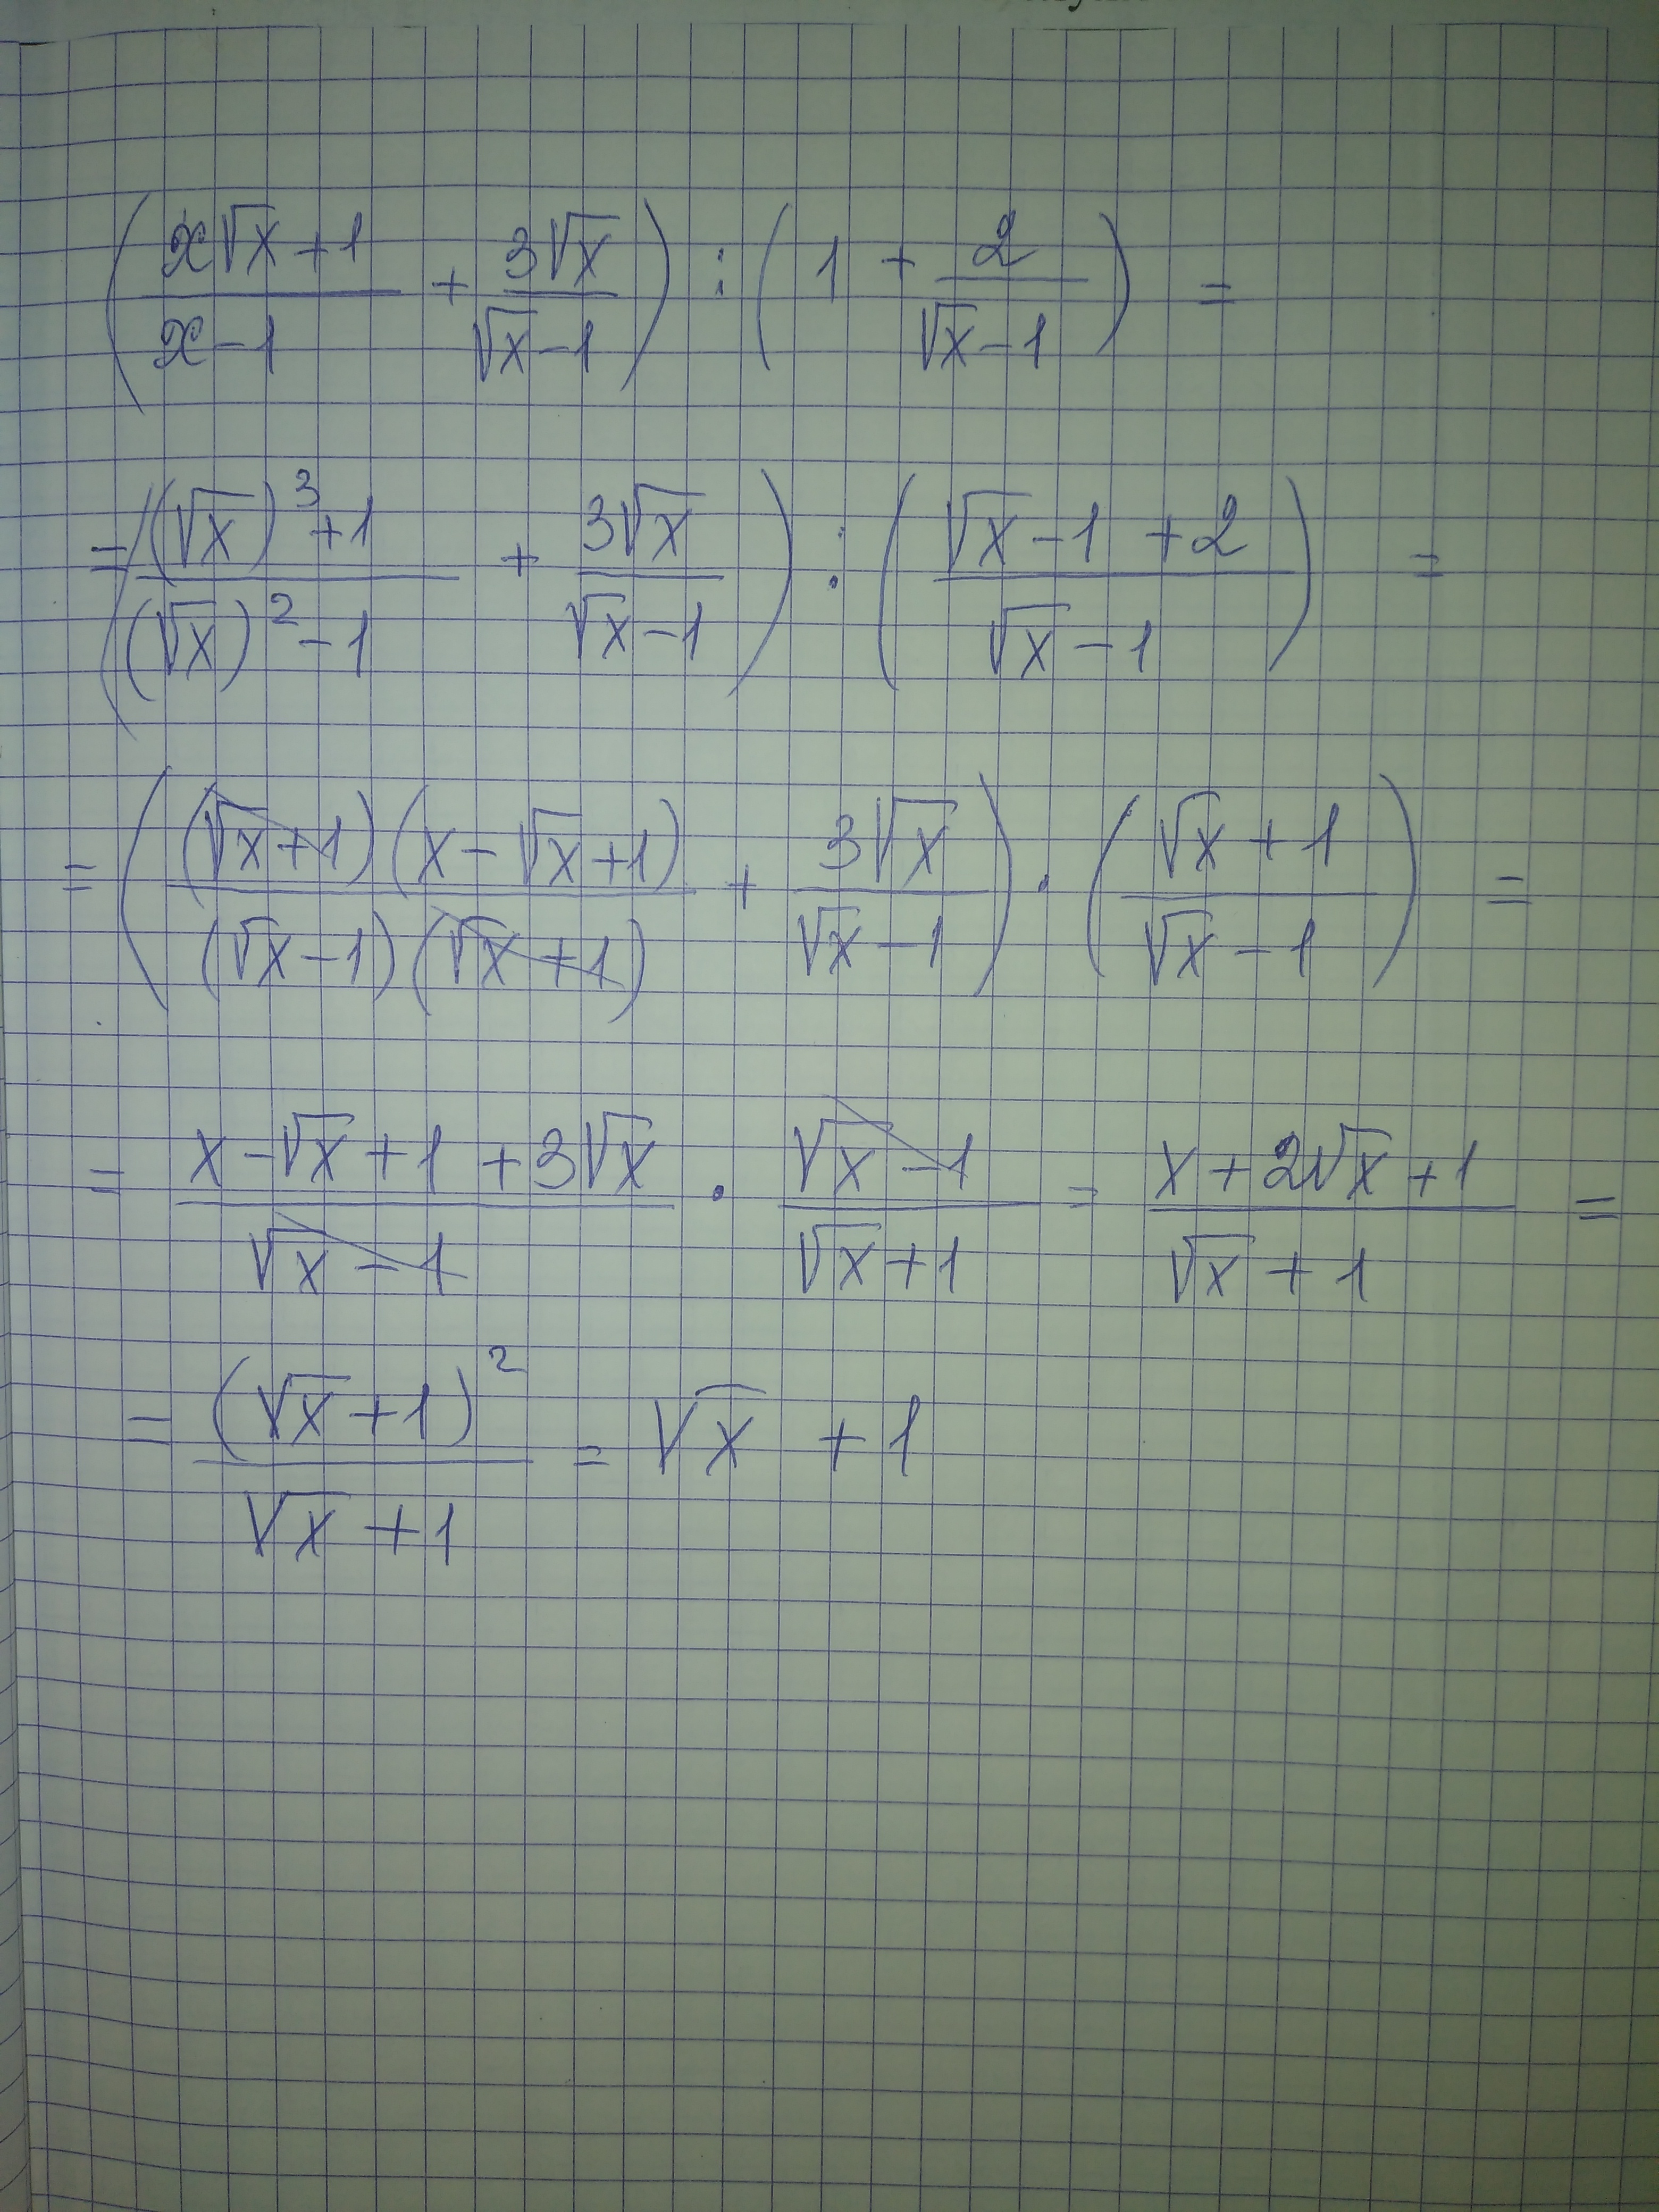 (x√x+1 / x−1 + 3√x / √x−1) : (1 + 2 / √x−1) =
= ((√x)³+1 / (√x)²−1 + 3√x / √x−1) : (√x−1+2 / √x−1) =
= ((√x+1)(x−√x+1) / (√x−1)(√x+1) + 3√x / √x−1) · (√x+1 / √x−1) =
= x−√x+1+3√x / √x−1 · √x−1 / √x+1 = x+2√x+1 / √x+1 =
= (√x+1)² / √x+1 = √x + 1